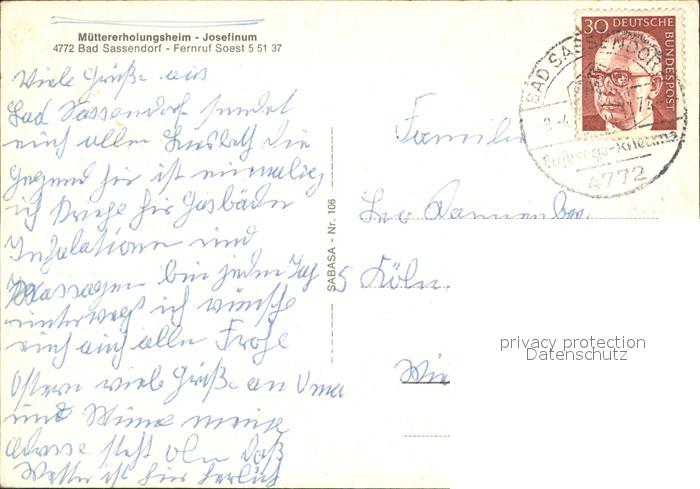 Müttererholungsheim - Josefinum
4772 Bad Sassendorf - Fernruf Soest 5 51 37
Viele Grüße aus
Bad Sassendorf sendet
euch allen Lisbeth die
Gegend hir ist einmalig
ich kriege hir Gasbäder
Inhalationen und
Massagen bin jeden Tag
unterwegs ich wünsche
euch auch allen Frohe
Ostern viele Grüße an Oma
und
adresse steht oben das
Wetter ist hir herlich
SABASA - Nr. 106
30 DEUTSCHE BUNDESPOST
BAD SASSENDORF
4772
Familie
Leo
5 Köln
privacy protection
Datenschutz